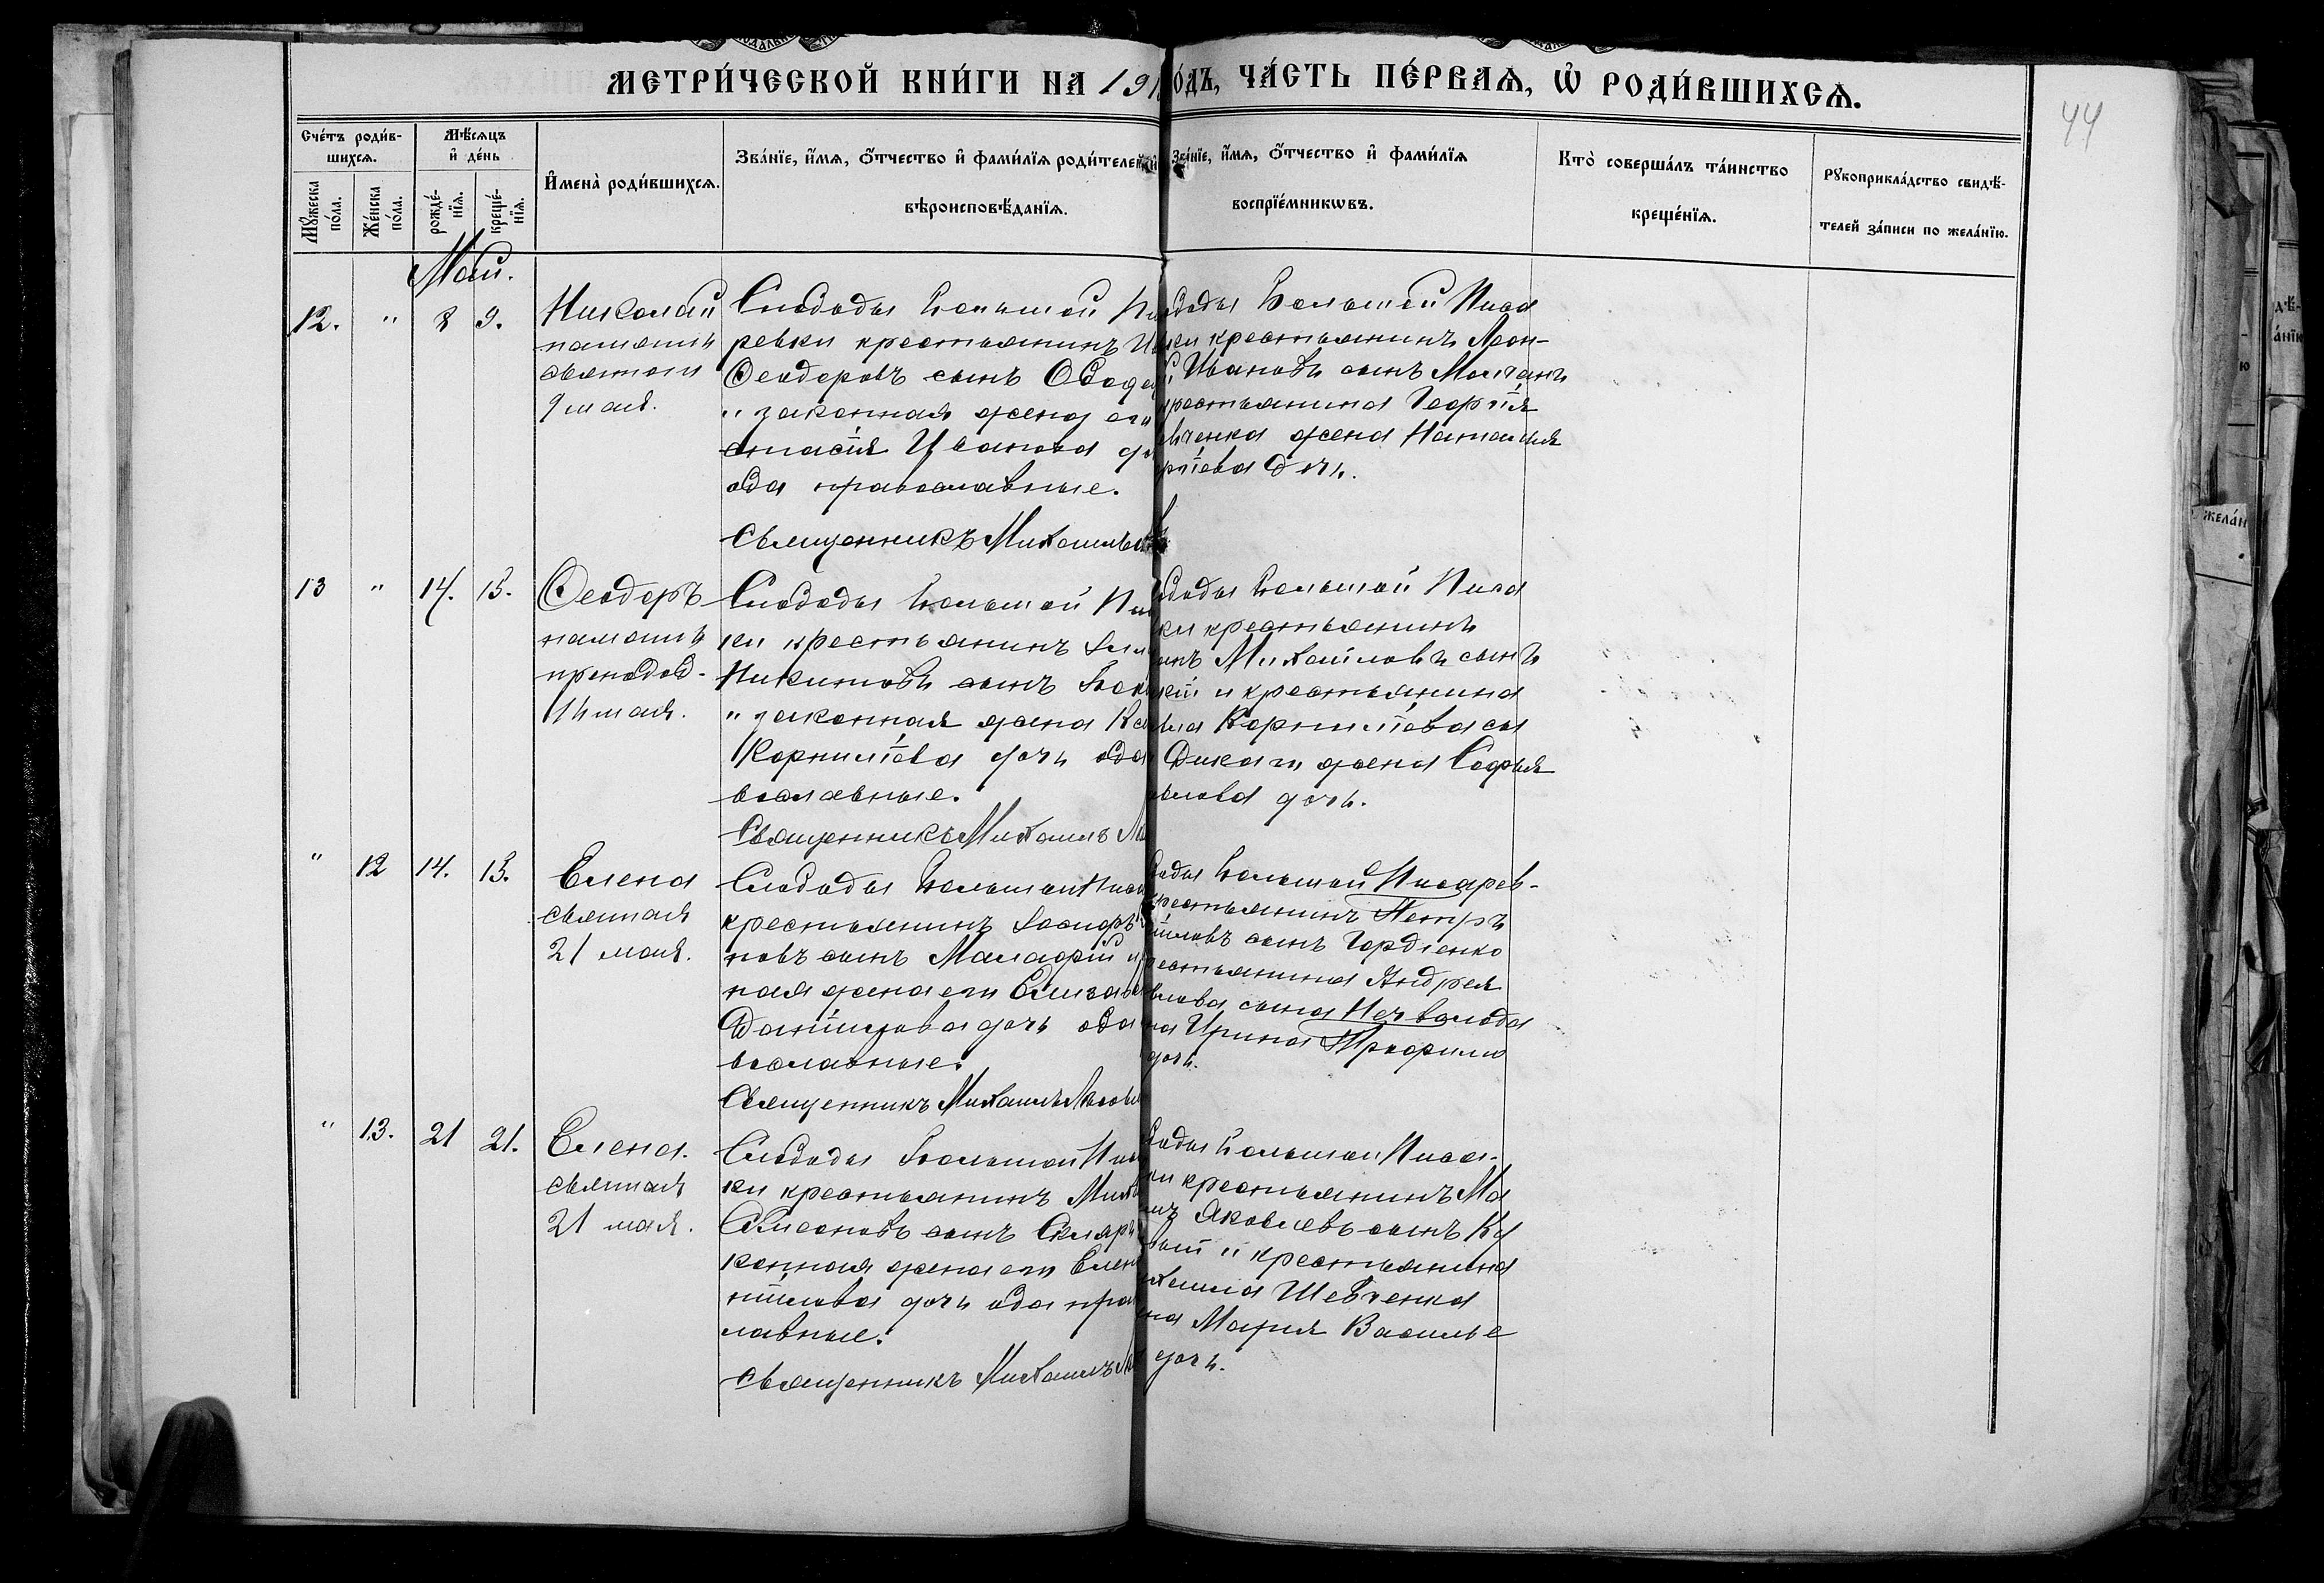 МЕТРИ́ЧЕСКОЙ КНИ́ГИ НА 191
О́ДЪ, ЧА́СТЬ ПЕ́РВАѦ, Ѡ҆ РОДИ́ВШИХСѦ.
44
Сче́тъ роди́в-
шихсѧ.
Мѣ́сѧцъ
и҆ де́нь
Мꙋ́жеска
по́ла.
Же́нска
по́ла.
рожде́-
нїѧ.
креще́-
нїѧ.
И҆мена̀ роди́вшихсѧ.
Зва́нїе, и҆́мѧ, ѻ҆́тчество и҆ фами́лїѧ роди́телей
вѣроисповѣ́данїѧ.
Зва́нїе, и҆́мѧ, ѻ҆́тчество и҆ фами́лїѧ
воспрїе́мникѡвъ.
Кто̀ соверша́лъ та́инство
креще́нїѧ.
Рꙋкоприкла́дство свидѣ́-
телей за́писи по жела́нїю.
Май.
12. " 8 9.
Николай
памянт
святого
9 мая.
Слободы Большой Пи
ревки крестьянинъ Ив
Ѳеодоровъ сынъ
и законная жена его
стасія Иванова до
оба православные.
Священникъ Михаилъ
ободы Большой Писа
ки крестьянинъ Леон-
й Ивановъ сынъ Молчанъ
крестьянина Георгія
вченка жена Наталия
ргіева дочь.
13 " 14. 15.
Ѳеодоръ
памянт
преподоб.
14 мая.
Слободы Большой Пи
ки крестьянинъ
Никитовъ сынъ
и законная жена Ксе
Корниліева дочь оба
вославные.
Священникъ Михаилъ
ободы Большой Писа
ки крестьянинъ
инъ Михаиловъ сынъ
кій и крестьянина
Корниліева сы
Дикаго жена Софья
влова дочь.
" 12 14. 15.
Елена
святая
21 мая.
Слободы Большой Писа
крестьянинъ Іосифъ
новъ сынъ Малафій и
ная жена его Елизаве
Даніилова дочь оба
вославные.
Священникъ Михаилъ
боды Большой Писарев-
крестьянинъ Петръ
иловъ сынъ Гордіенко
рестьянина Андрея
влова сына Нечволода
на Ирина Трофимо
дочь.
" 13. 21 21.
Елена.
святая
21 мая.
Слободы Большой Пис
ки крестьянинъ Миха
Симеоновъ сынъ Скляръ
конная жена его Елен
ніилова дочь оба пра
лавные.
Священникъ Михаилъ
боды Большой Писа-
ки крестьянинъ Ма
мъ Яковлевъ сынъ Ку
вый и крестьянина
хаила Шевченка
на Мария Василье
дочь.